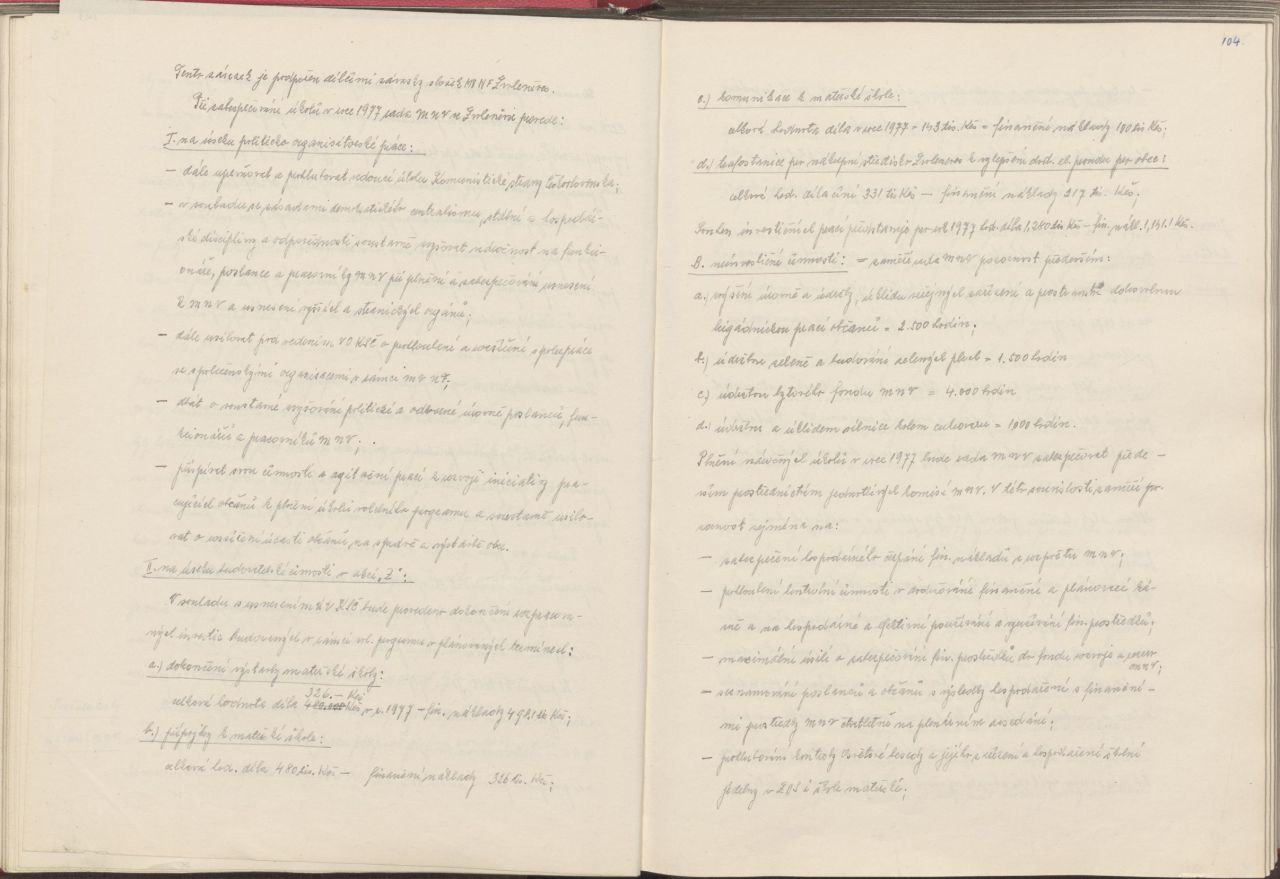 Tento závazek je podpořen dílčími závazky složek MV NF Zvoleněves.
Při zabezpečování úkolů v roce 1977 rada MNV ve Zvoleněvsi provede:
I. na úseku politicko organisátorské práce:
– dále upevňovat a prohlubovat vedoucí úlohu Komunistické strany Československa;
– v souladu se zásadami demokratického centralismu, státní a hospodář-
ské disciplíny a odpovědnosti soustavně zvyšovat náročnost na funkci-
onáře, poslance a pracovníky MNV při plnění a zabezpečování usnesení
MNV a usnesení vyšších a stranických orgánů;
– dále usilovat pod vedením VO KSČ o prohloubení a rozšíření spolupráce
se společenskými organisacemi v rámci MV NF;
– dbát o soustavné zvyšování politické a odborné úrovně poslanců, fun-
kcionářů a pracovníků MNV;
– přispívat svou činností a agitační prací k rozvoji iniciativy pra-
cujících občanů k plnění úkolů volebního programu a soustavně usilo-
vat o rozšíření účasti občanů na správě a výstavbě obce.
II. na úseku budovatelské činnosti v akci „Z“:
V souladu s usnesením KSČ bude provedeno dokončení rozpraco-
ných investic budovaných v rámci vol. programu v plánovaných termínech:
a.) dokončení výstavby mateřské školy:
326.– Kčs
celková hodnota díla 480.000 Kčs v r. 1977 – fin. náklady 498,1 tis Kčs;
b.) přípojky k mateřské škole:
celková hod. díla 480 tis. Kčs – finanční náklady 326 tis. Kčs;
104.
c.) komunikace k mateřské škole:
celková hodnota díla v roce 1977 = 143 tis. Kčs = finanční náklady 100 tis Kčs;
d.) trafostanice pro nákupní středisko Zvoleněves k vylepšení dod. el. proudu pro obec:
celková hod. díla činí 331 tis Kčs – finanční náklady 217 tis. Kčs;
Souhrn investičních prací představuje pro rok 1977 hod. díla 1,280 tis Kčs – fin. nákl. 1,141.1 Kčs.
B. neinvestiční činnosti: = zaměří rada MNV pozornost především:
a.) zvýšení úrovně a údržby, úklidu veřejných zařízení a prostranství dobrovolnou
brigádnickou prací občanů = 2.500 hodin.
b.) údržbu zeleně a budování zelených ploch = 1.500 hodin
c.) údržbou bytového fondu MNV = 4.000 hodin
d.) údržbu a úklidem silnice kolem cukrovaru = 1000 hodin.
Plnění náročných úkolů v roce 1977 bude rada MNV zabezpečovat přede-
vším prostřednictvím jednotlivých komisí MNV. V této souvislosti zaměří po-
zornost zejména na:
– zabezpečení hospodárného čerpání fin. nákladů z rozpočtu MNV;
– prohloubení kontrolní činnosti v dodržování finanční a plánovací ká-
zně a na hospodárné a efektivní používání a využívání fin. prostředků;
– maximální úsilí o zabezpečování fin. prostředků do fondu rozvoje a rezerv
MNV;
– seznamování poslanců a občanů s výsledky hospodaření s finanční-
mi prostředky MNV čtvrtletně na plenárním zasedání;
– prohlubování kontroly Osvětové besedy a jejího zařízení a hospodaření školní
jídelny v ZDŠ i škole mateřské;